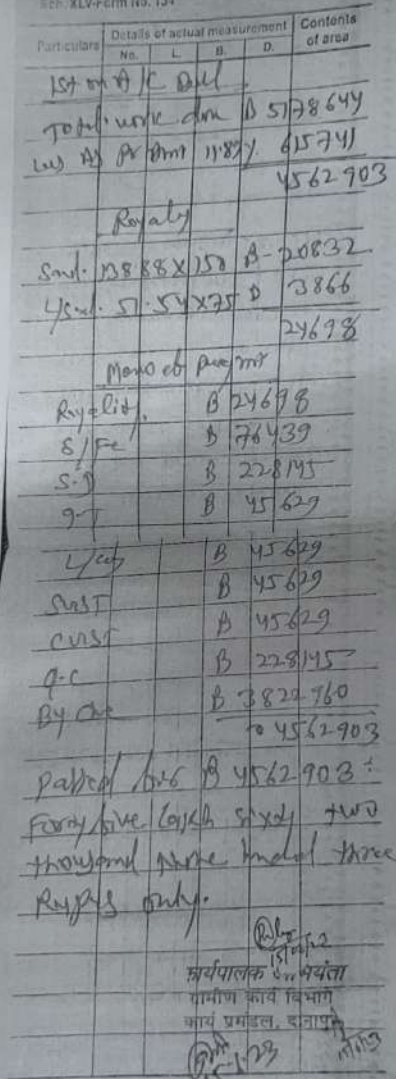 Sch. XLV-Form No. 134
Particulars Details of actual measurement Contents of area
No. L. B. D.
1st on A/C Bill
Total work done B 5178644
Less As Pr 11.89% 615741
4562903
Royalty
Sand. 138.88 X 150 B- 20832
L/Sand. 51.54 X 75 B 3866
24698
Memo of payment
Royality. B 24698
S/Fe B 76439
S.D B 228145
B 45629
L/Cess B 45629
SGST B 45629
CGST B 45629
B 228145
By Che B 3822960
4562903
Passed for B 4562903
Forty five lakh sixty two
thousand nine hundred three
Rupees only.
कार्यपालक अभियंता
ग्रामीण कार्य विभाग
कार्य प्रमंडल, दानापुर